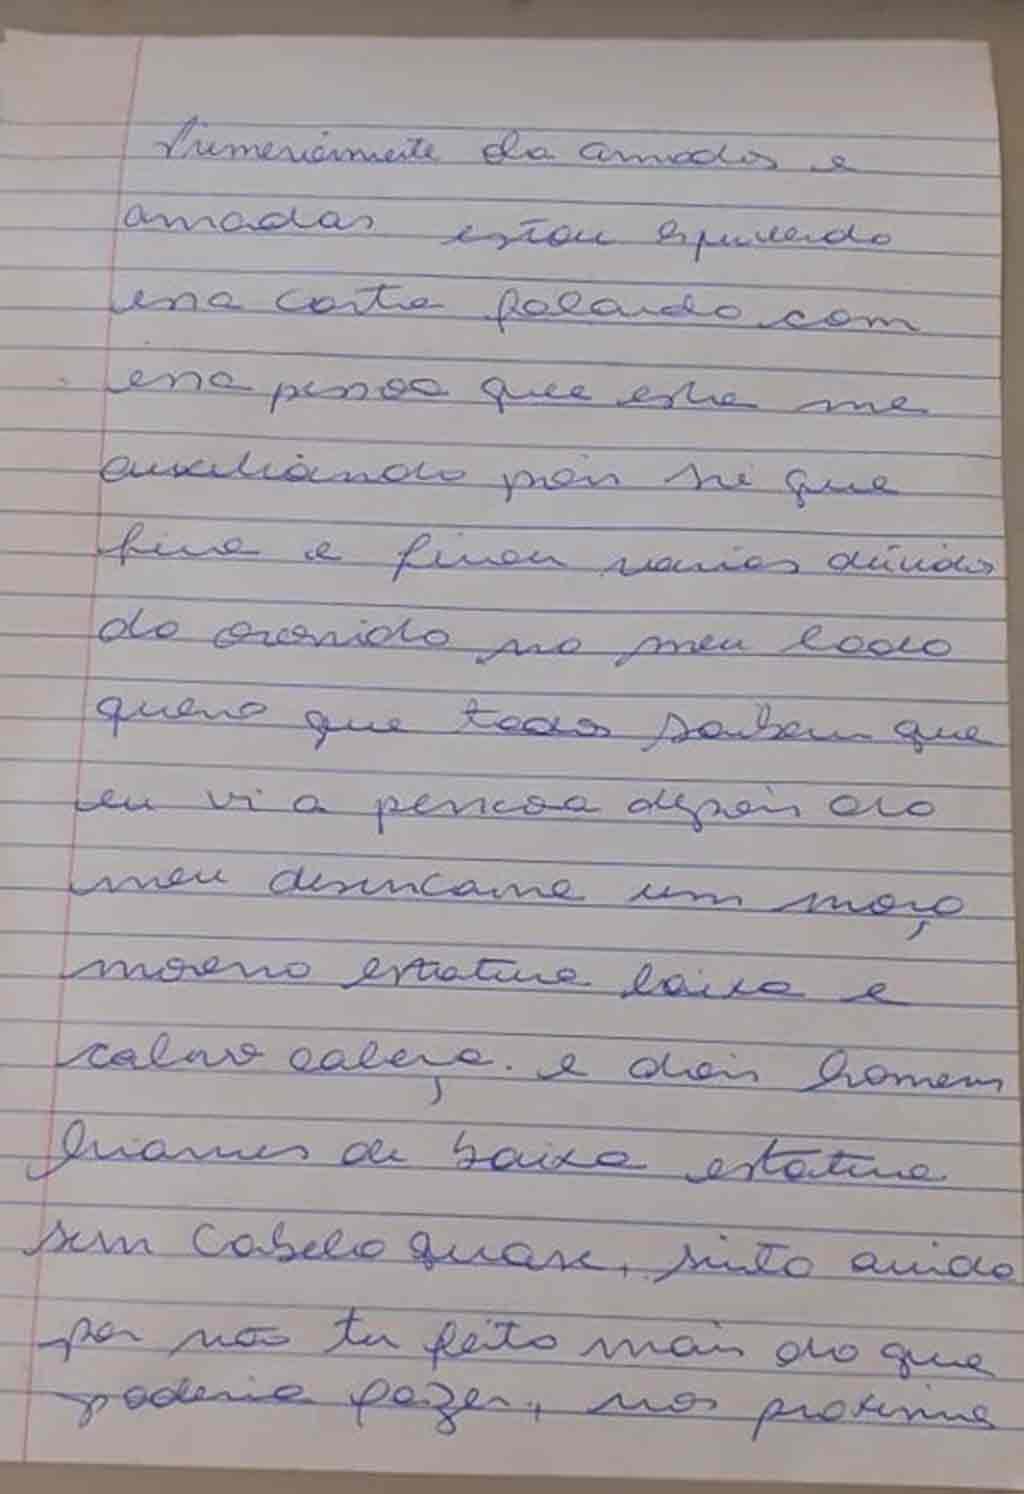 da amados e
amadas estou escrevendo
essa carta falando com
essa pessoa que esta me
auxiliando pois sei que
fica e ficou varias dúvidas
do ocorrido no meu lado
quero que todos saibam que
eu vi a pessoa depois do
meu desencarne um moço
moreno estatura baixa e
calvo cabeça. e dois homens
de baixa estatura
sem cabelo quase, sinto ainda
por não ter feito mais do que
poderia fazer, nos proxima